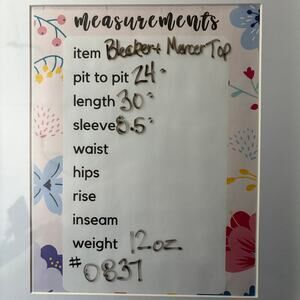 measurements
item Bleeker & Mercer Top
pit to pit 24"
length 30"
sleeve 8.5"
waist
hips
rise
inseam
weight 12oz
#0837